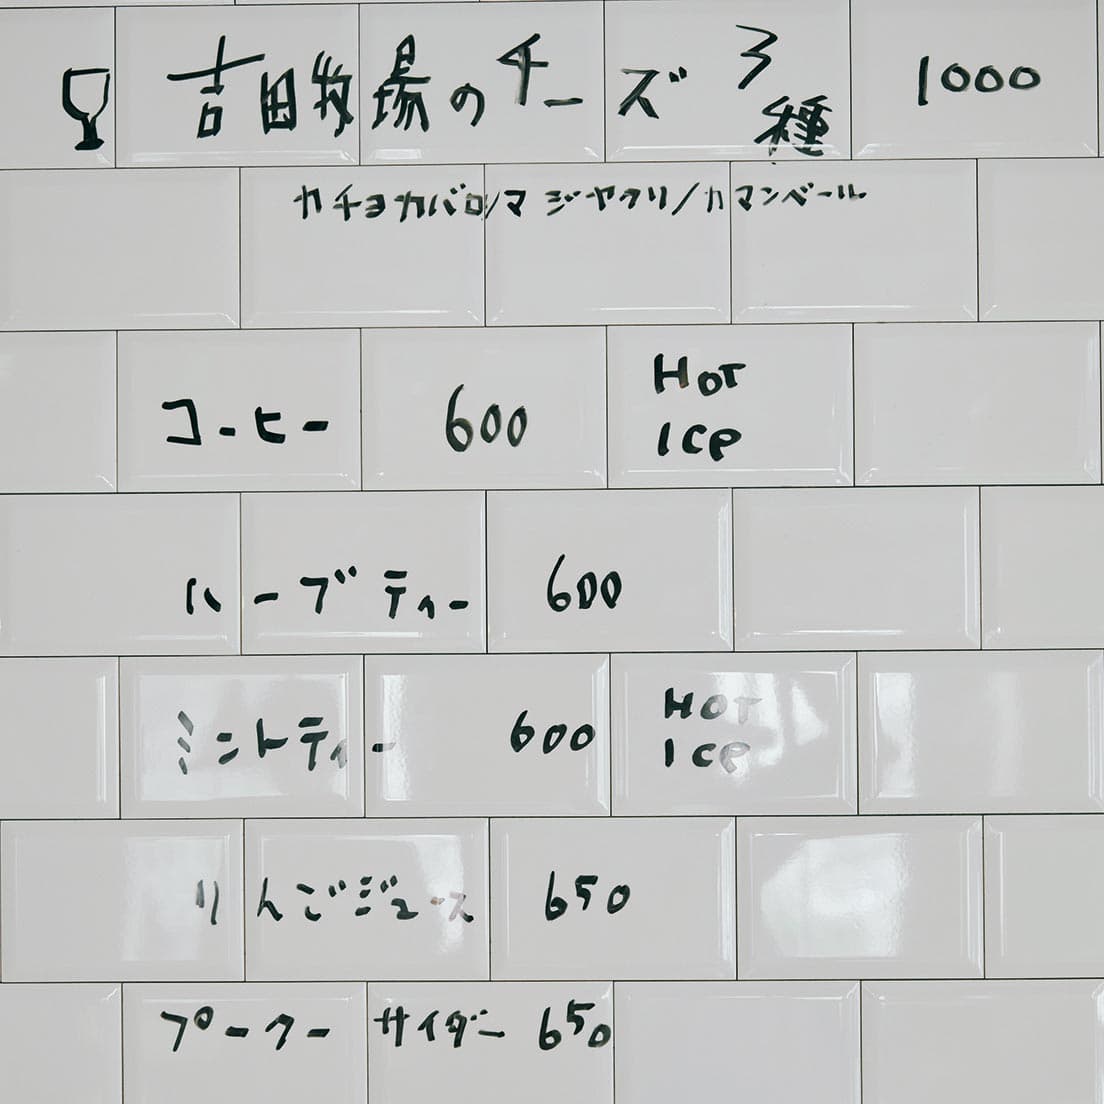 吉田牧場のチーズ 3種 1000
カチョカバロ/マジヤクリ/カマンベール
コーヒー 600 HOT ICe
ハーブティー 600
ミントティー 600 HOT ICe
りんごジュース 650
プークー サイダー 650